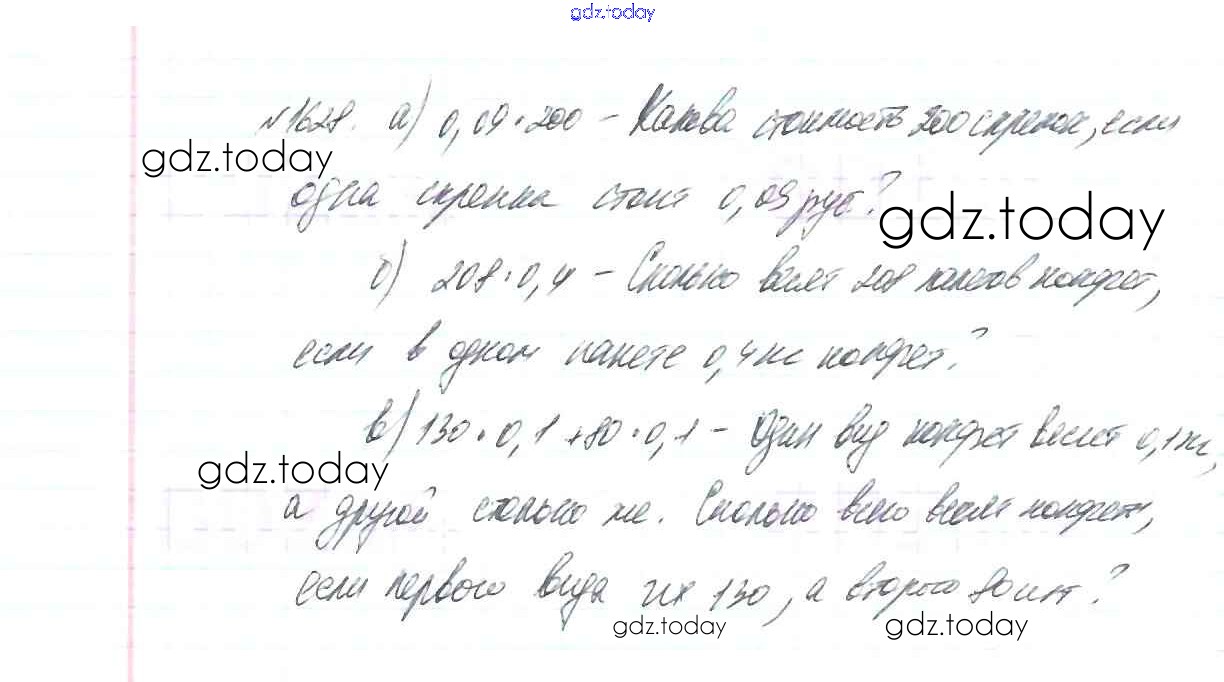 gdz.today
№1628. а) 0,09·200 – Какова стоимость 200 скрепок, если
gdz.today
одна скрепка стоит 0,09 руб?
gdz.today
б) 208·0,4 – Сколько весят 208 пакетов конфет,
если в одном пакете 0,4 кг конфет?
в) 130·0,1+80·0,1 – Один вид конфет весит 0,1 кг,
gdz.today
а другой столько же. Сколько всего весят конфеты,
если первого вида их 130, а второго 80 шт?
gdz.today
gdz.today